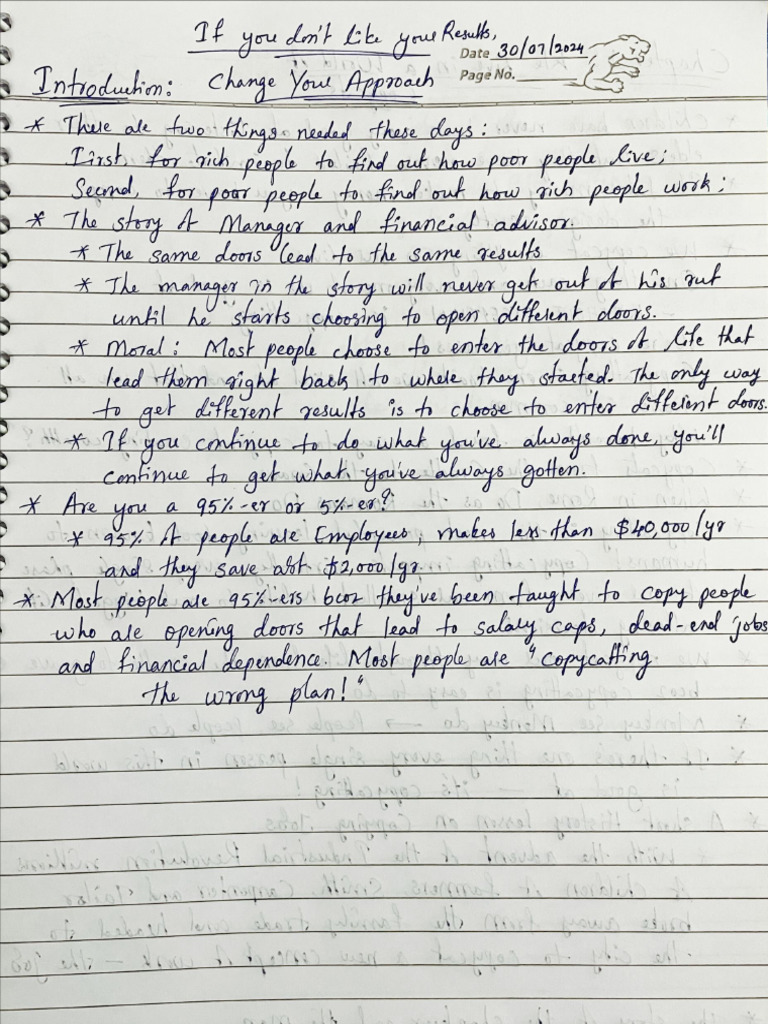 If you don't like your Results,
Date 30/07/2024
Introduction: Change Your Approach
Page No.
* There are two things needed these days:
First, for rich people to find out how poor people live;
Second, for poor people to find out how rich people work;
* The story of Manager and financial advisor.
* The same doors lead to the same results
* The manager in the story will never get out of his rut
until he starts choosing to open different doors.
* Moral: Most people choose to enter the doors of life that
lead them right back to where they started. The only way
to get different results is to choose to enter different doors.
* If you continue to do what you've always done, you'll
continue to get what you've always gotten.
* Are you a 95%-er or 5%-er?
* 95% of people are Employees, makes less than $40,000/yr
and they save abt $2,000/yr.
* Most people are 95%-ers becoz they've been taught to copy people
who are opening doors that lead to salary caps, dead-end jobs
and financial dependence. Most people are "copycatting
the wrong plan!"